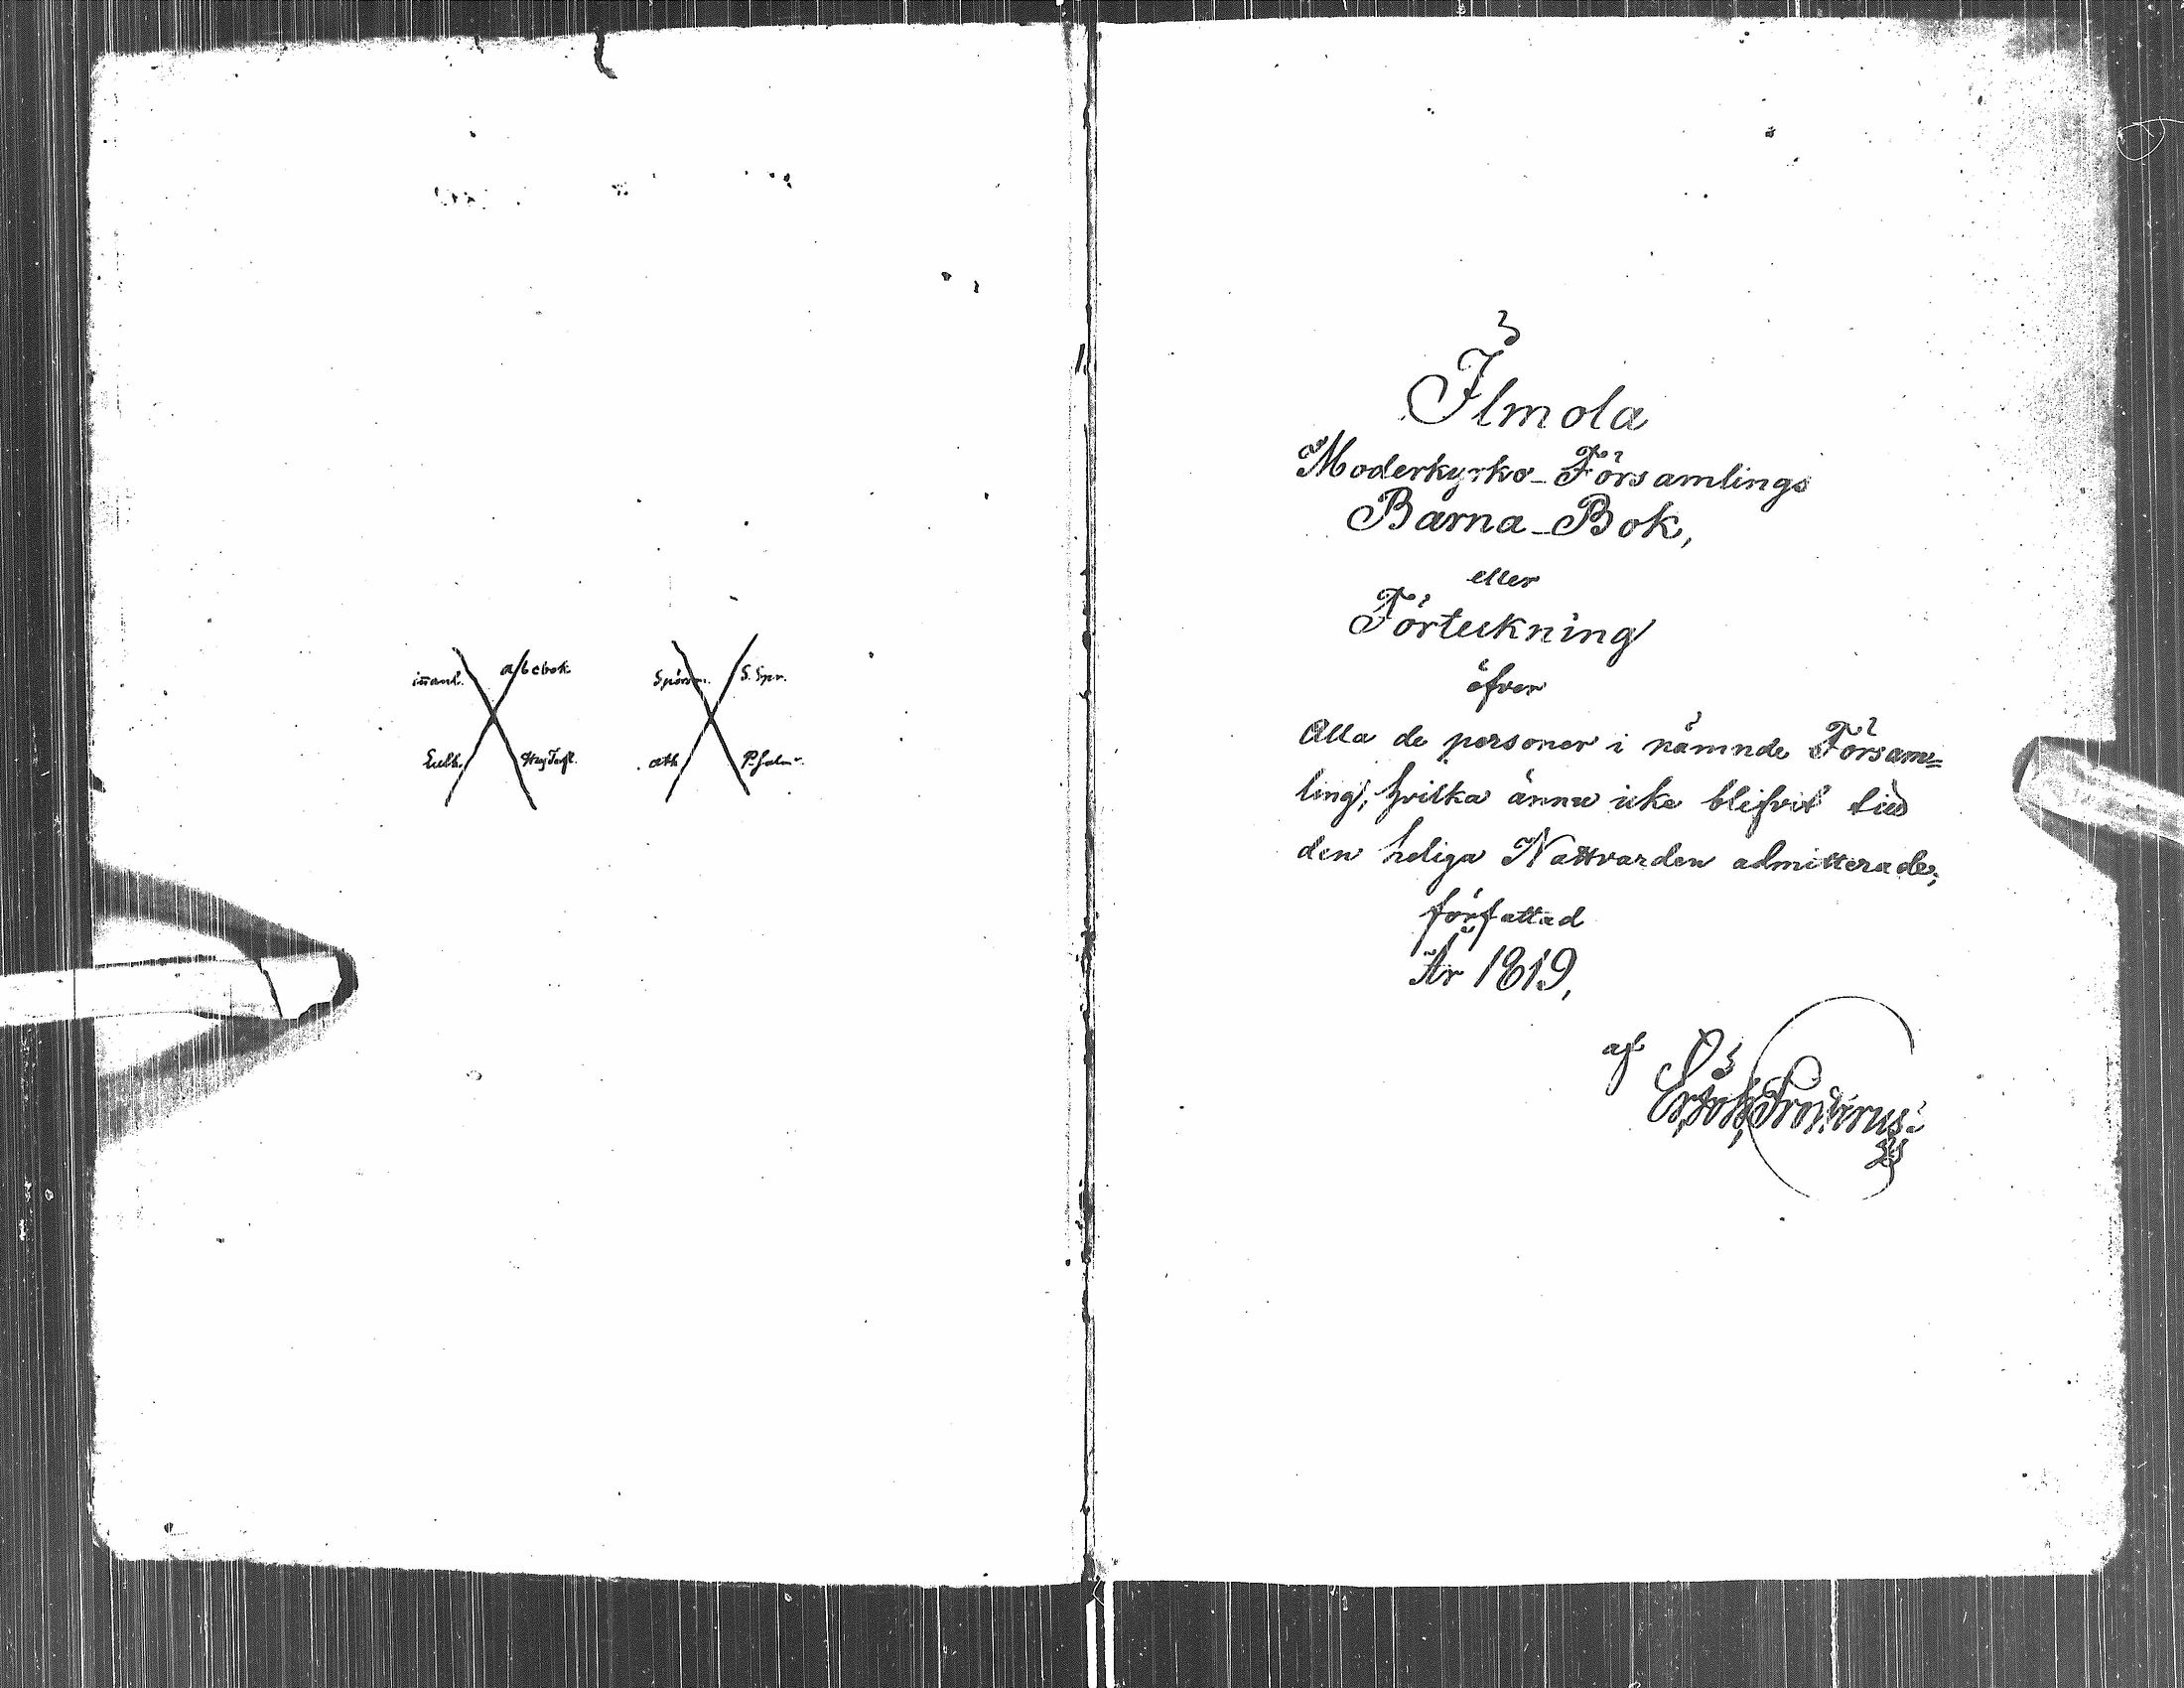 innanl. abcbok
Luth. Hus Tafl.
Spörsm. S. Spr.
ath. Psalm.
Ilmola
Moderkyrko-Församlings
Barna-Bok,
eller
Förteckning
öfver
Alla de personer i nämnde Försam=
ling, hvilka ännu icke blifvit till
den heliga Nattvarden admitterade;
författad
År 1819,
af